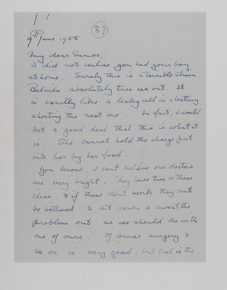 37
9th June 1955
My dear Eunice,
I did not realise you had your boy
at home. Surely this is a terrible strain
Belinda absolutely tires me out. It
is exactly like a leaky cell in a battery
shorting the next one. In fact, I would
bet a good deal that this is what it
is. She cannot hold the charge put
into her by her food.
You know, I don't believe our doctors
are very bright. They have two or three
ideas & if these don't work they can't
be bothered to sit down & sweat the
problem out as we should do with
one of ours. Of course surgery &
so on is very good, but that is the